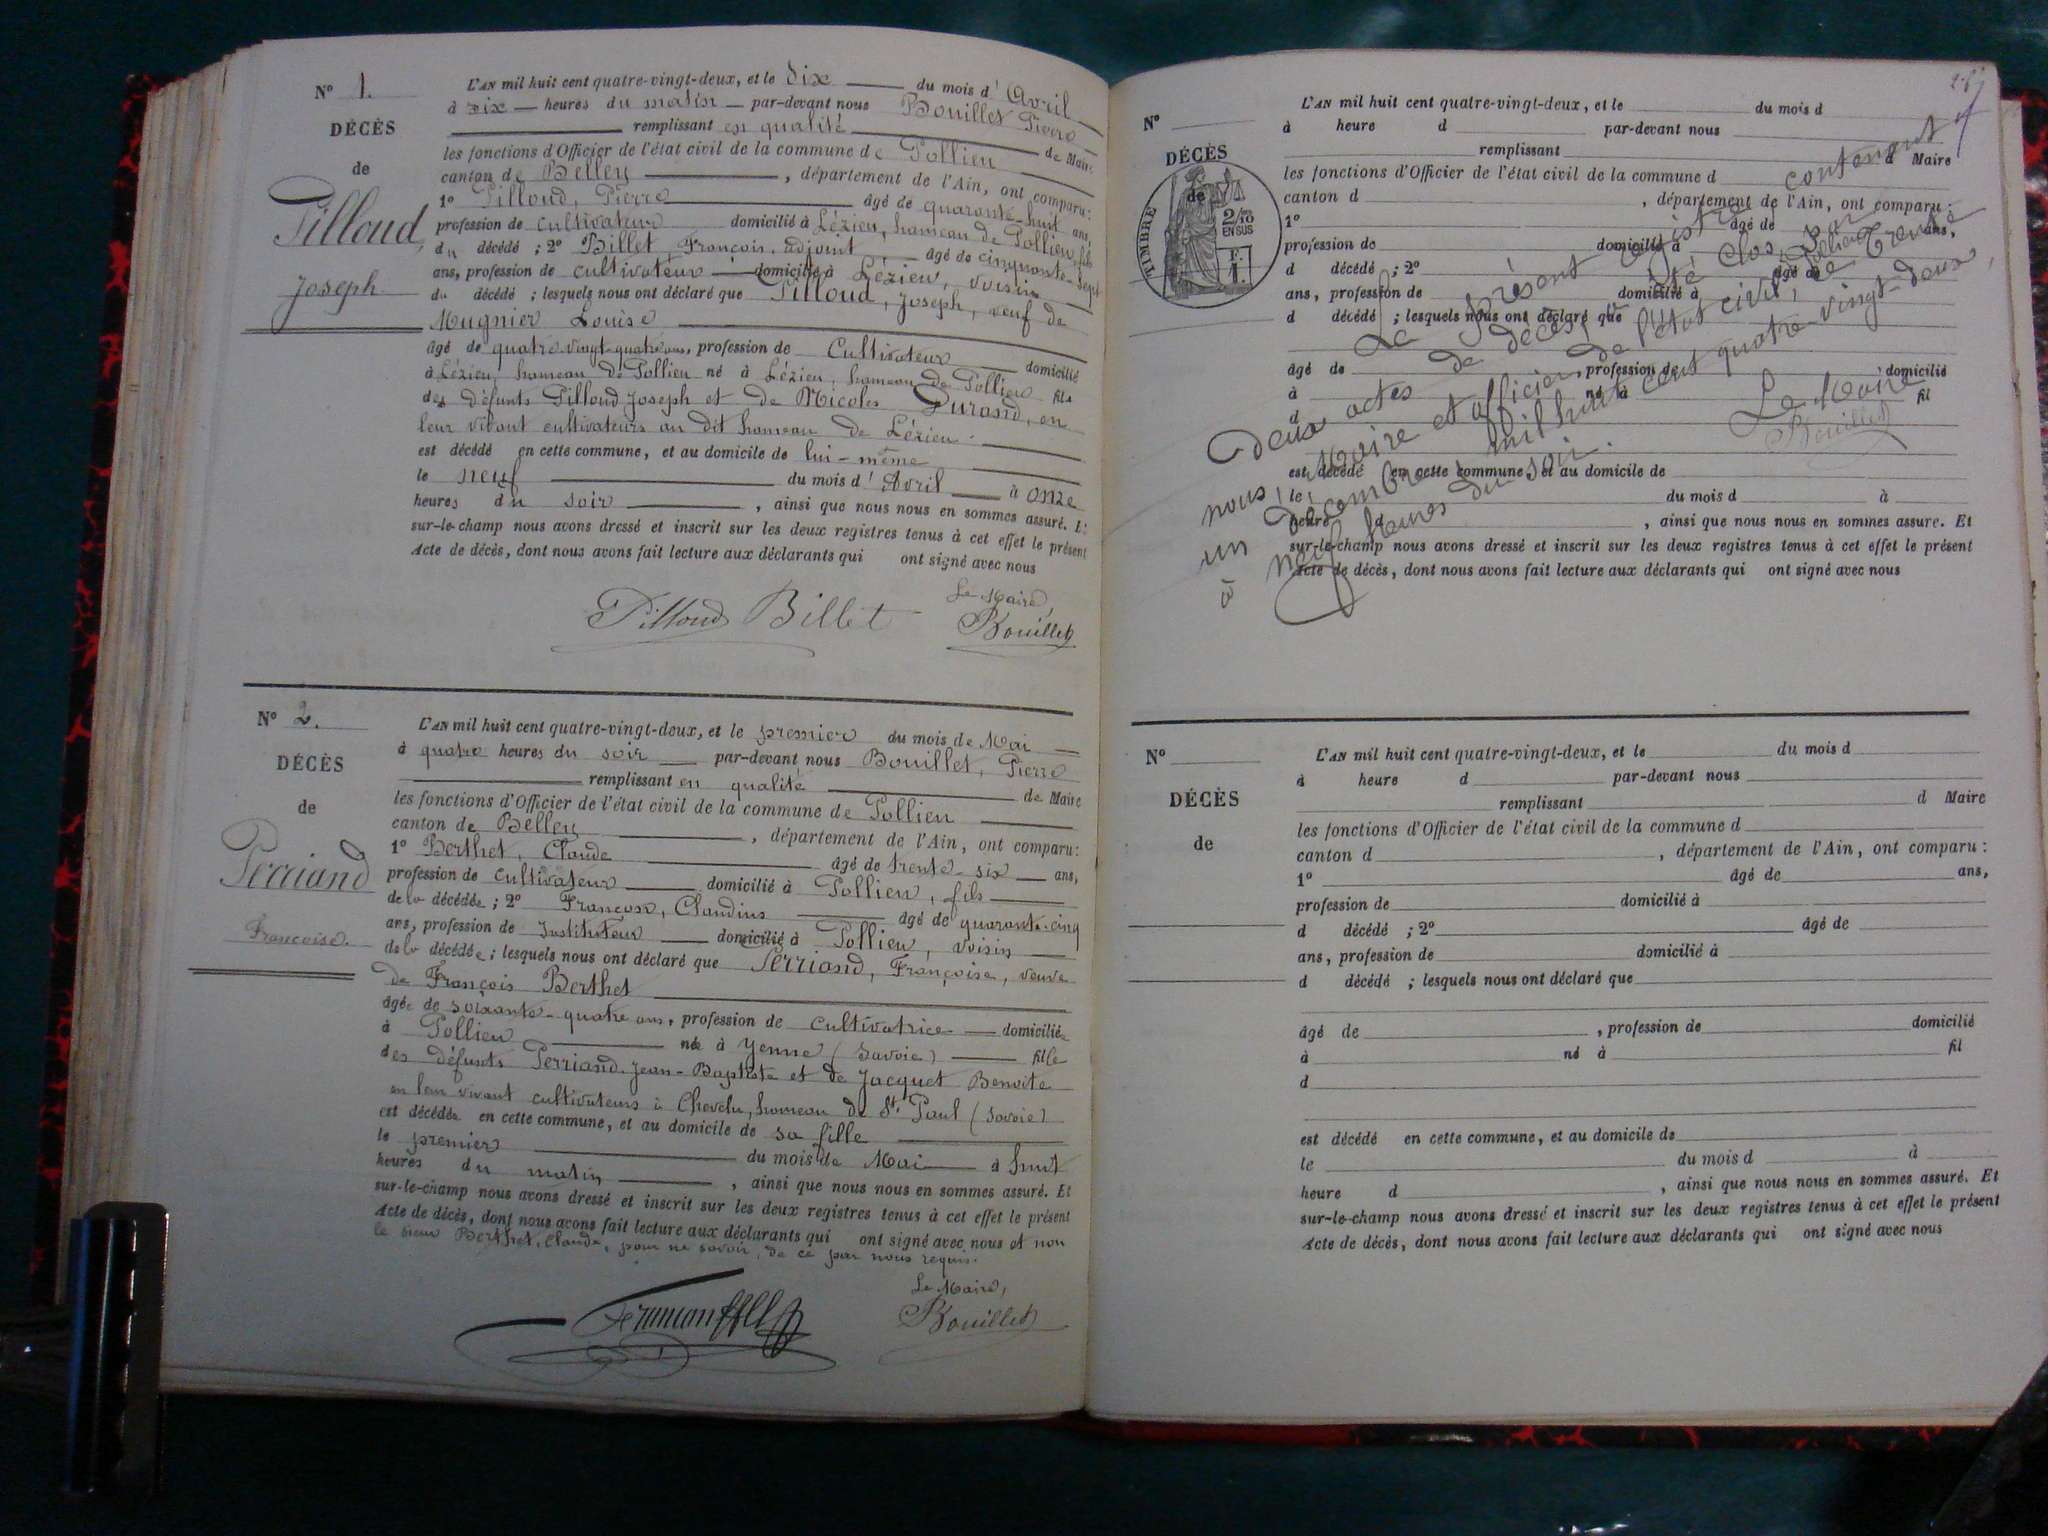 N° 1.
DÉCÈS
de
Pilloud,
Joseph
L'AN mil huit cent quatre-vingt-deux, et le dix du mois d'Avril
à dix heures du matin par-devant nous Bouillet Pierre
remplissant en qualité de Maire
les fonctions d'Officier de l'état civil de la commune de Pollieu
canton de Belley, département de l'Ain, ont comparu:
1° Pilloud, Pierre âgé de quarante-huit ans,
profession de cultivateur domicilié à Lézieu, hameau de Pollieu, fils
du décédé; 2° Billet, François, adjoint âgé de cinquante-sept
ans, profession de cultivateur domicilié à Lézieu, voisin
du décédé; lesquels nous ont déclaré que Pilloud, Joseph, veuf de
Mugnier Louise
âgé de quatre-vingt-quatre ans, profession de Cultivateur domicilié
à Lézieu, hameau de Pollieu né à Lézieu, hameau de Pollieu fils
des défunts Pilloud Joseph et de Nicolas Durand, en
leur vivant cultivateurs au dit hameau de Lézieu
est décédé en cette commune, et au domicile de lui-même
le neuf du mois d'Avril à onze
heures du soir, ainsi que nous nous en sommes assuré. Et
sur-le-champ nous avons dressé et inscrit sur les deux registres tenus à cet effet le présent
Acte de décès, dont nous avons fait lecture aux déclarants qui ont signé avec nous
Pilloud Billet Le Maire,
Bouillet
N° 2.
DÉCÈS
de
Perriand
Françoise.
L'AN mil huit cent quatre-vingt-deux, et le premier du mois de Mai
à quatre heures du soir par-devant nous Bouillet, Pierre
remplissant en qualité de Maire
les fonctions d'Officier de l'état civil de la commune de Pollieu
canton de Belley, département de l'Ain, ont comparu:
1° Berthet, Claude âgé de trente-six ans,
profession de cultivateur domicilié à Pollieu, fils
de la décédée; 2° Françon, Claudius âgé de quarante-cinq
ans, profession de Instituteur domicilié à Pollieu, voisin
de la décédée; lesquels nous ont déclaré que Perriand, Françoise, veuve
de François Berthet
âgée de soixante-quatre ans, profession de cultivatrice domiciliée
à Pollieu née à Yenne (Savoie) fille
des défunts Perriand Jean-Baptiste et de Jacquet Benoite
en leur vivant cultivateurs à Chevelu, hameau de St. Paul (Savoie)
est décédée en cette commune, et au domicile de sa fille
le premier du mois de Mai à huit
heures du matin, ainsi que nous nous en sommes assuré. Et
sur-le-champ nous avons dressé et inscrit sur les deux registres tenus à cet effet le présent
Acte de décès, dont nous avons fait lecture aux déclarants qui ont signé avec nous et non
le sieur Berthet, Claude, pour ne savoir, de ce par nous requis.
Le Maire,
Bouillet
N°
DÉCÈS
de
TIMBRE
2/10
EN SUS
F.
1.
L'AN mil huit cent quatre-vingt-deux, et le du mois d
à heure d par-devant nous
remplissant d Maire
les fonctions d'Officier de l'état civil de la commune d
canton d, département de l'Ain, ont comparu:
1° âgé de ans,
profession de domicilié à
d décédé; 2° âgé de
ans, profession de domicilié à
d décédé; lesquels nous ont déclaré que
âgé de, profession de domicilié
à né à fil
d
est décédé en cette commune, et au domicile de
le du mois d à
heure d, ainsi que nous nous en sommes assuré. Et
sur-le-champ nous avons dressé et inscrit sur les deux registres tenus à cet effet le présent
Acte de décès, dont nous avons fait lecture aux déclarants qui ont signé avec nous
Le présent registre contenant
Deux actes de décès, a été clos par
nous, Maire et officier de l'état civil, le trente
un décembre mil huit cent quatre-vingt-deux,
à neuf heures du soir.
Le Maire
Bouillet
N°
DÉCÈS
de
L'AN mil huit cent quatre-vingt-deux, et le du mois d
à heure d par-devant nous
remplissant d Maire
les fonctions d'Officier de l'état civil de la commune d
canton d, département de l'Ain, ont comparu:
1° âgé de ans,
profession de domicilié à
d décédé; 2° âgé de
ans, profession de domicilié à
d décédé; lesquels nous ont déclaré que
âgé de, profession de domicilié
à né à fil
d
est décédé en cette commune, et au domicile de
le du mois d à
heure d, ainsi que nous nous en sommes assuré. Et
sur-le-champ nous avons dressé et inscrit sur les deux registres tenus à cet effet le présent
Acte de décès, dont nous avons fait lecture aux déclarants qui ont signé avec nous